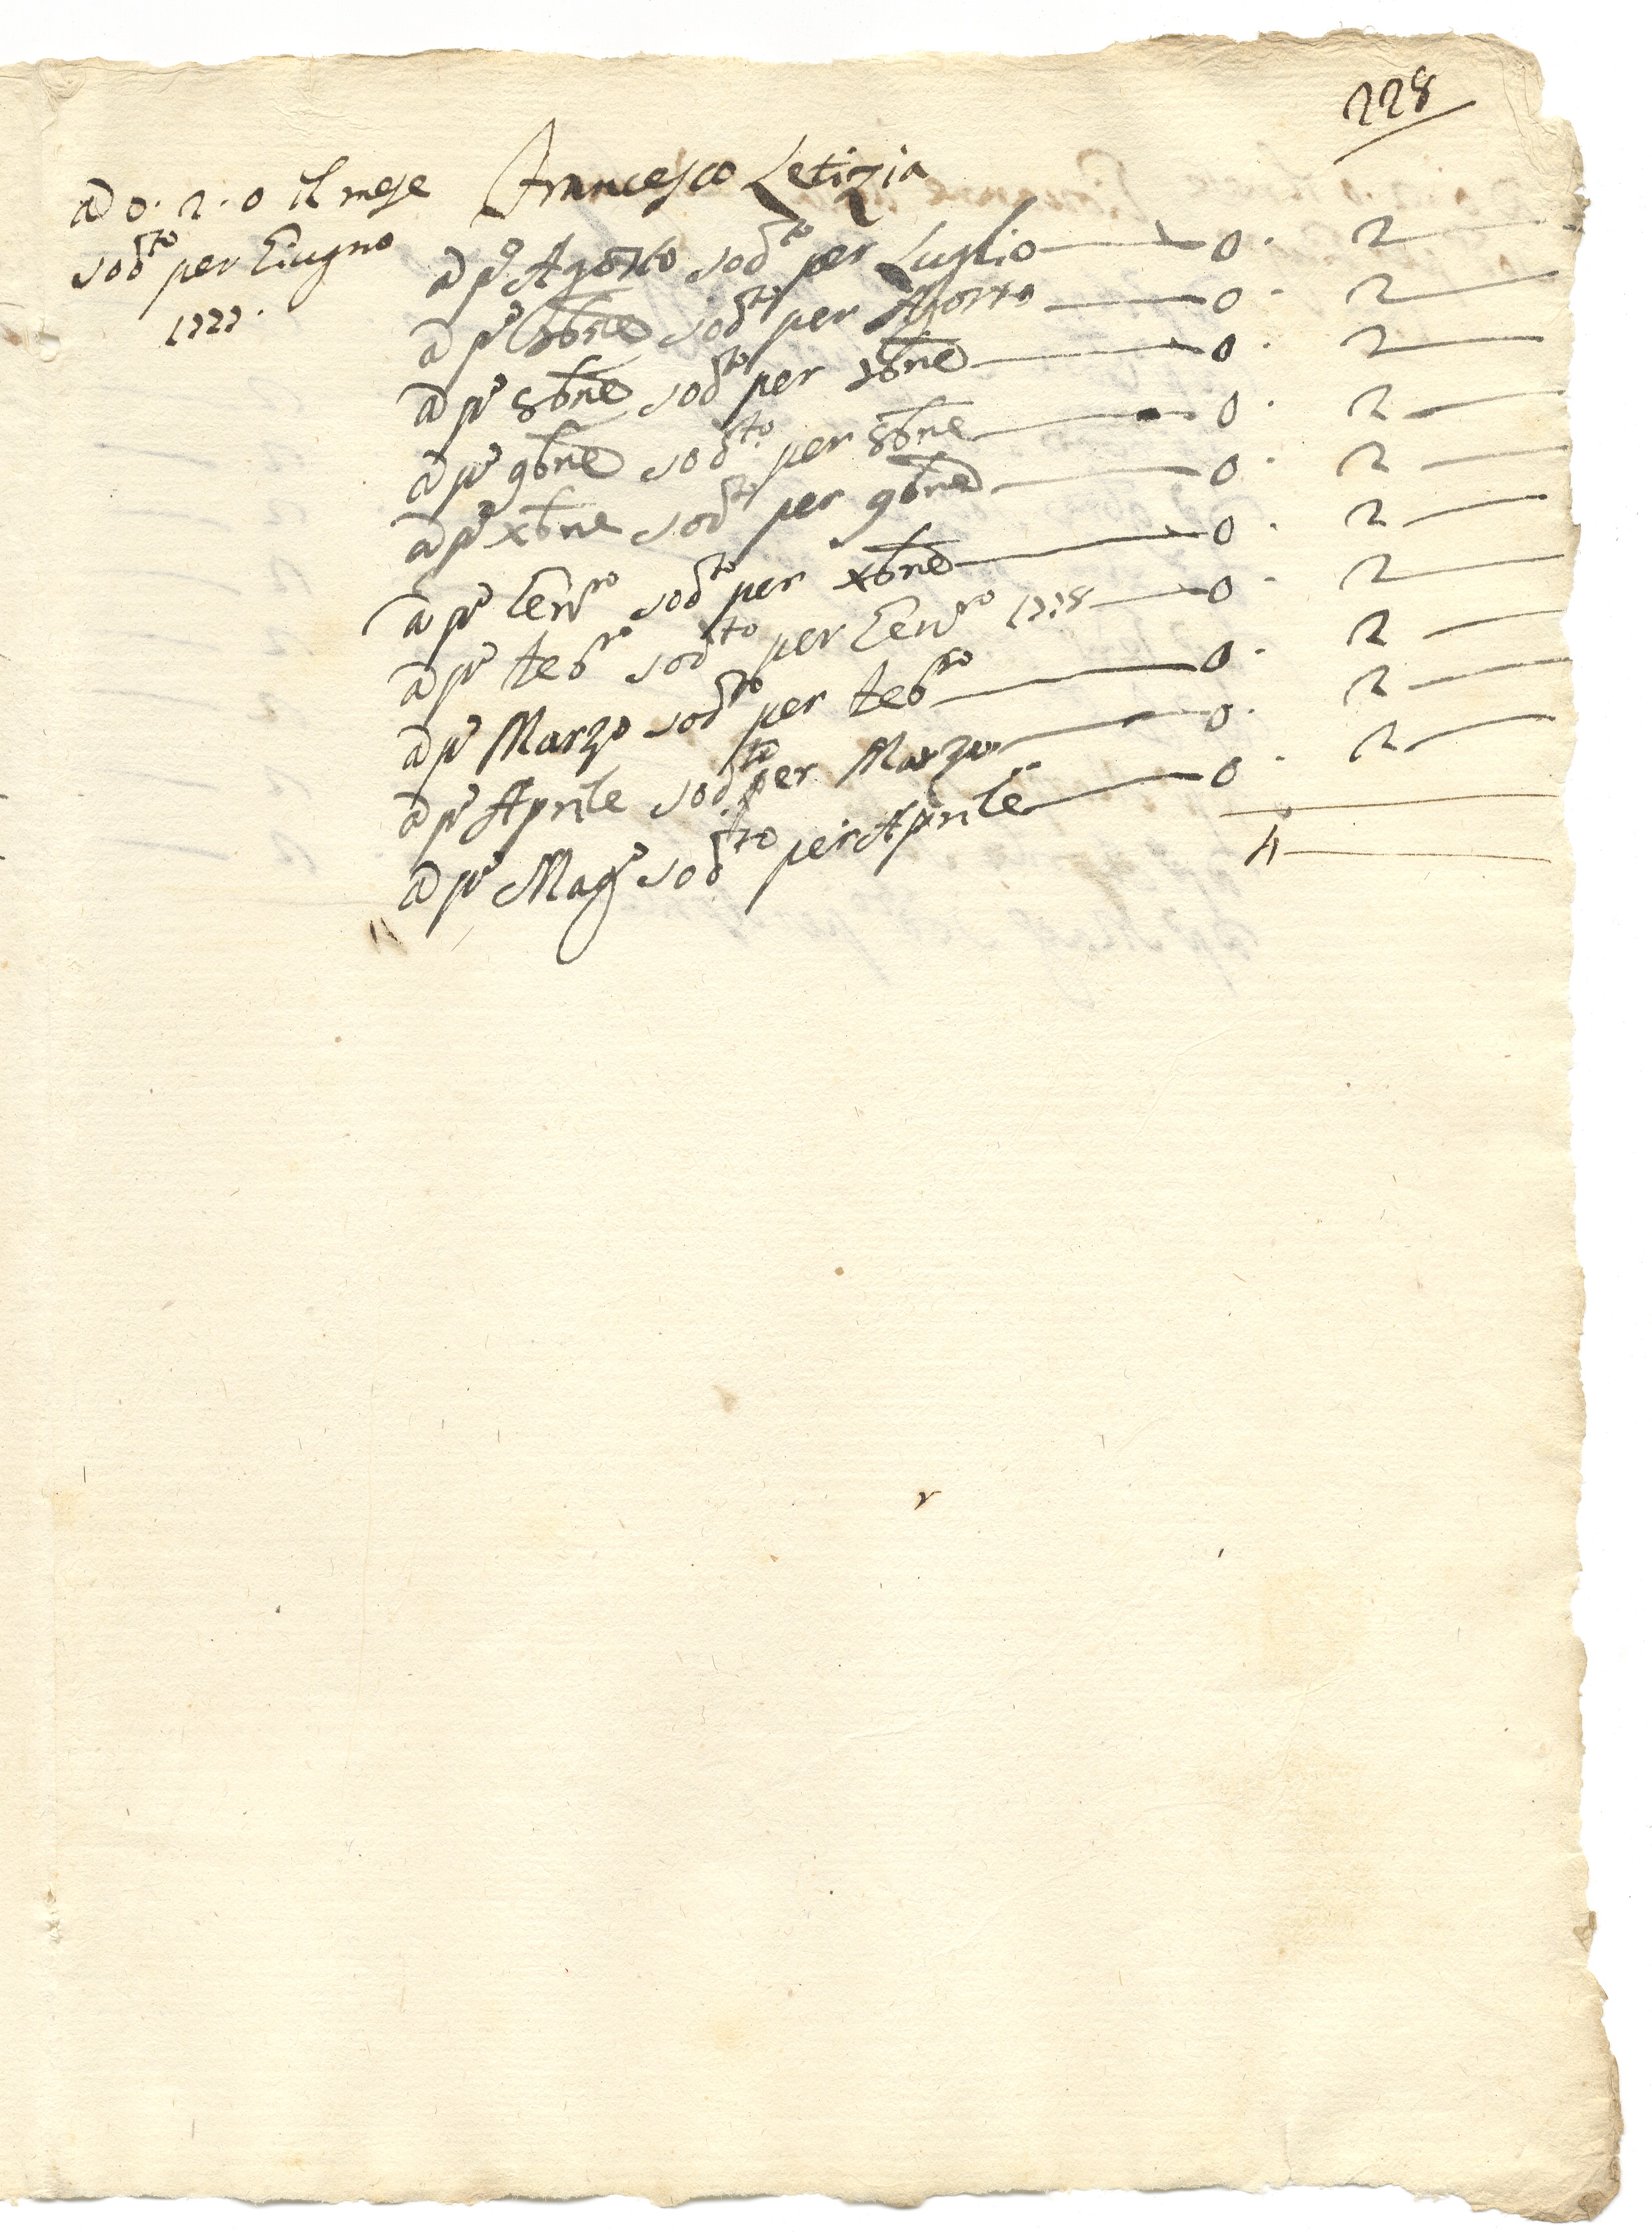 228
a 0. 2. 0 il mese
sod.to per Giugno
1777.
Francesco Letizia
a p.o Agosto sod.to per Luglio — 0. 2 —
a p.o 7bre sod.to per Agosto — 0. 2 —
a p.o 8bre sod.to per 7bre — 0. 2 —
a p.o 9bre sod.to per 8bre — 0. 2 —
a p.o xbre sod.to per 9bre — 0. 2 —
a p.o Gen.ro sod.to per xbre — 0. 2 —
a p.o feb.ro sod.to per Gen.ro 1778 — 0. 2 —
a p.o Marzo sod.to per feb.ro — 0. 2 —
a p.o Aprile sod.to per Marzo — 0. 2 —
a p.o Mag.o sod.to per Aprile — 0. 2 —